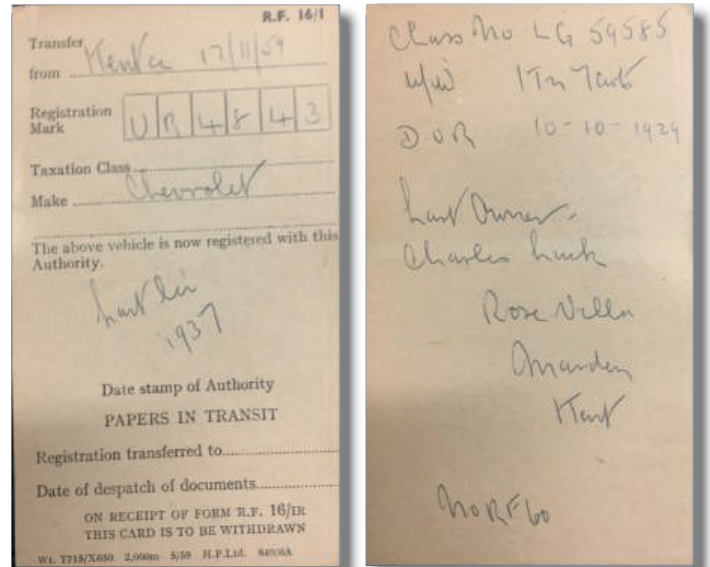 R.F. 16/1
Transfer
from Kent 17/11/59
Registration
Mark UR 4843
Taxation Class
Make Chevrolet
The above vehicle is now registered with this
Authority.
Last lic
1937
Date stamp of Authority
PAPERS IN TRANSIT
Registration transferred to
Date of despatch of documents
ON RECEIPT OF FORM R.F. 16/1R
THIS CARD IS TO BE WITHDRAWN
Wt. T715/X650 2,000m 5/59 H.P.Ltd.
Chass No LG 59585
u/w 1 Tn
D O R 10-10-1929
Last Owner.
Charles Luck
Rose Villa
Marden
Kent
No RF 60